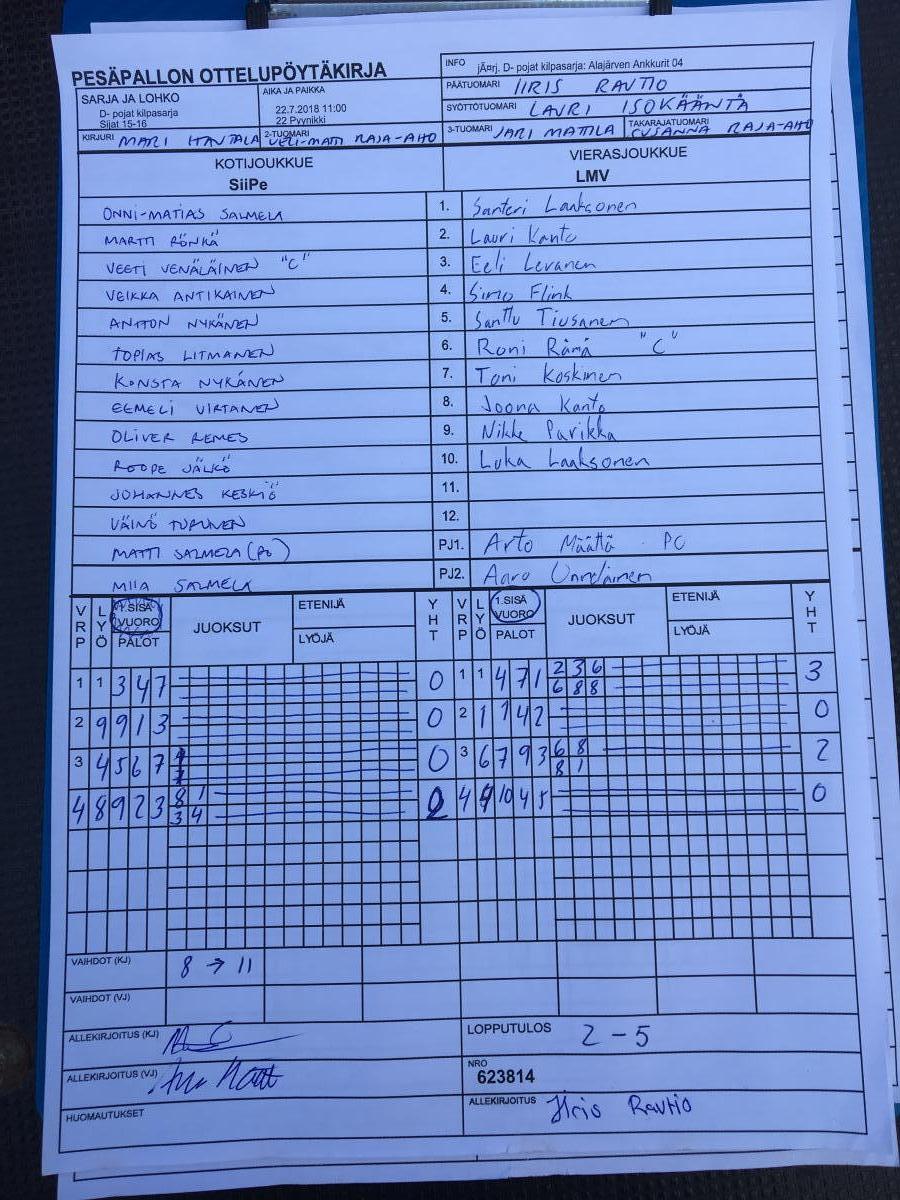 PESÄPALLON OTTELUPÖYTÄKIRJA
INFO jÃ¤rj. D- pojat kilpasarja: Alajärven Ankkurit 04
SARJA JA LOHKO
D- pojat kilpasarja
Sijat 15-16
AIKA JA PAIKKA
22.7.2018 11:00
22 Pyynikki
PÄÄTUOMARI IIRIS RAUTIO
SYÖTTÖTUOMARI LAURI ISOKÄÄNTÄ
KIRJURI MARI HAUTALA 2-TUOMARI VELI-MATTI RAJA-AHO 3-TUOMARI JARI MATTILA TAKARAJATUOMARI SUSANNA RAJA-AHO
KOTIJOUKKUE VIERASJOUKKUE
SiiPe LMV
ONNI-MATIAS SALMELA 1. Santeri Laaksonen
MARTTI RÖNKÄ 2. Lauri Kanto
VEETI VENÄLÄINEN "C" 3. Eeli Levanen
VEIKKA ANTIKAINEN 4. Simo Flink
ANTTON NYKÄNEN 5. Santtu Tiusanen
TOPIAS LITMANEN 6. Roni Rämä "C"
KONSTA NYKÄNEN 7. Toni Koskinen
EEMELI VIRTANEN 8. Joona Kanto
OLIVER REMES 9. Nikke Parikka
ROOPE JÄLKÖ 10. Luka Laaksonen
JOHANNES KESKIÖ 11.
VÄINÖ TUPUNEN 12.
MATTI SALMELA (PO) PJ1. Arto Määttä PO
MIIA SALMELA PJ2. Aaro
VRP LYÖ 1.SISÄ VUORO PALOT JUOKSUT ETENIJÄ LYÖJÄ YHT VRP LYÖ 1.SISÄ VUORO PALOT JUOKSUT ETENIJÄ LYÖJÄ YHT
1 1 3 4 7 0 1 1 4 7 1 2 3 6 3
6 8 8
2 9 9 1 3 0 2 1 7 4 2 0
3 4 5 6 7 0 3 6 7 9 3 6 8 2
8 1
4 8 9 2 3 8 1 2 4 9 10 4 5 0
3 4
VAIHDOT (KJ) 8 → 11
VAIHDOT (VJ)
ALLEKIRJOITUS (KJ)
LOPPUTULOS 2 - 5
ALLEKIRJOITUS (VJ)
NRO
623814
HUOMAUTUKSET
ALLEKIRJOITUS Iiris Rautio